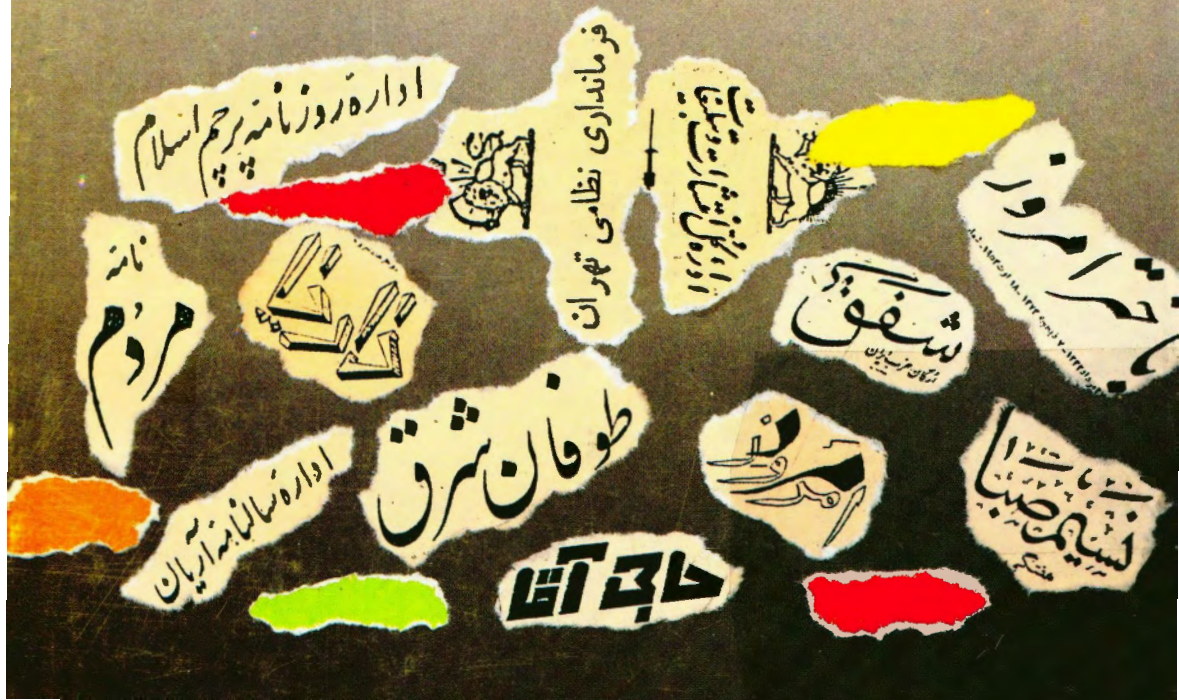 ادارهٔ روزنامه پرچم اسلام
فرمانداری نظامی تهران
اداره کل انتشارات و تبلیغات
نامه
مردم
شفق
ارگان حزب ایران
طوفان شرق
نسیم صبا
اداره سالنامه آریان
حاجی آقا